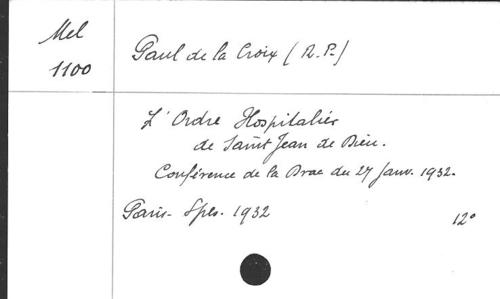 Mel
1100
Paul de la Croix (R.P.)
L'Ordre Hospitalier
de Saint Jean de Dieu.
Conférence de la Drac du 27 Janv. 1932.
Paris - Spes. 1932
12°